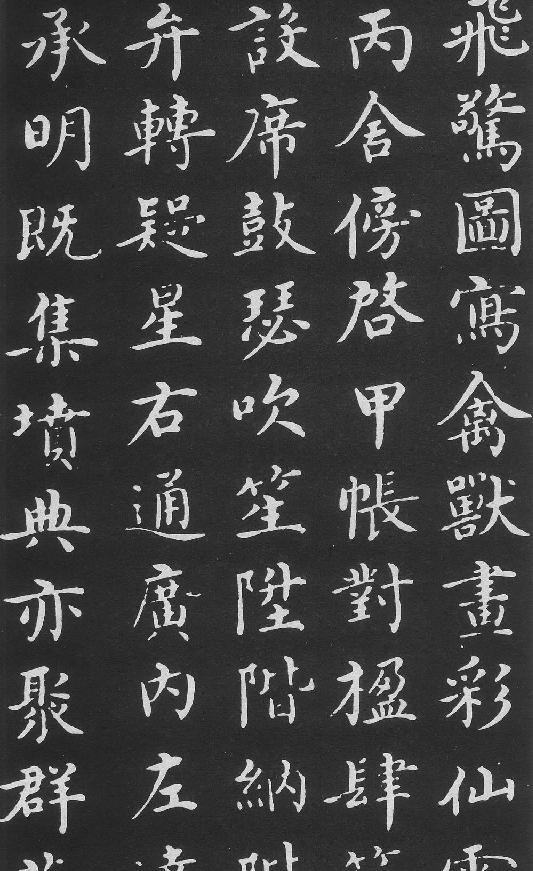 飛驚圖寫禽獸畫彩仙
丙舍傍啓甲帳對楹肆
設席鼓瑟吹笙陞階納
弁轉疑星右通廣内左
承明既集墳典亦聚群